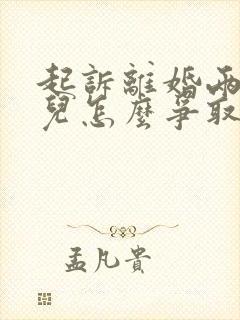 起訴離婚兩
兒怎麼爭取
孟凡貴